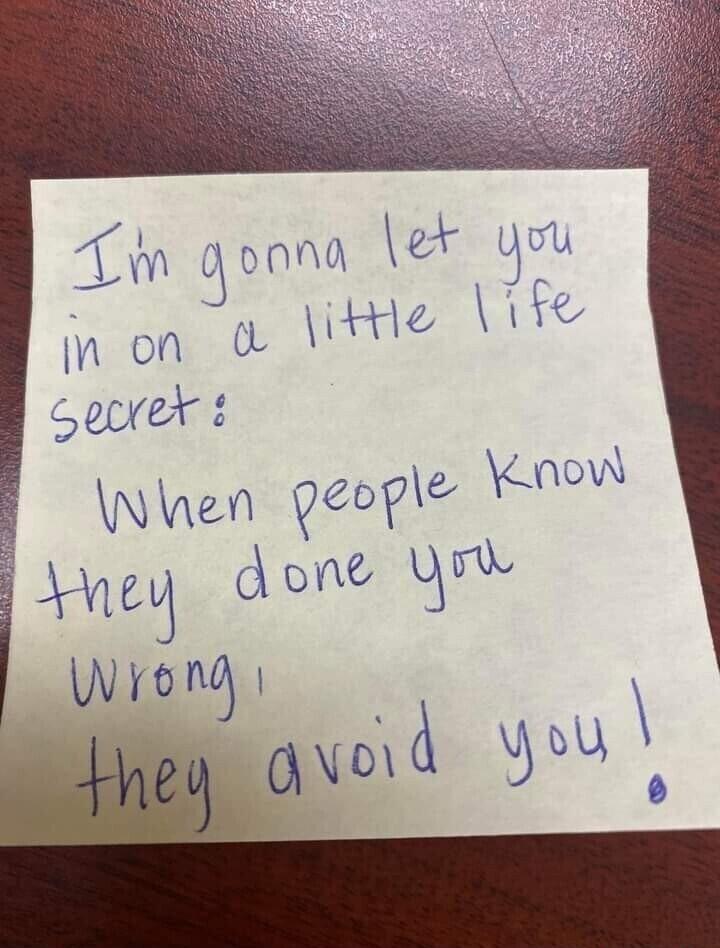 I'm gonna let you
in on a little life
secret:
When people know
they done you
wrong,
they avoid you!